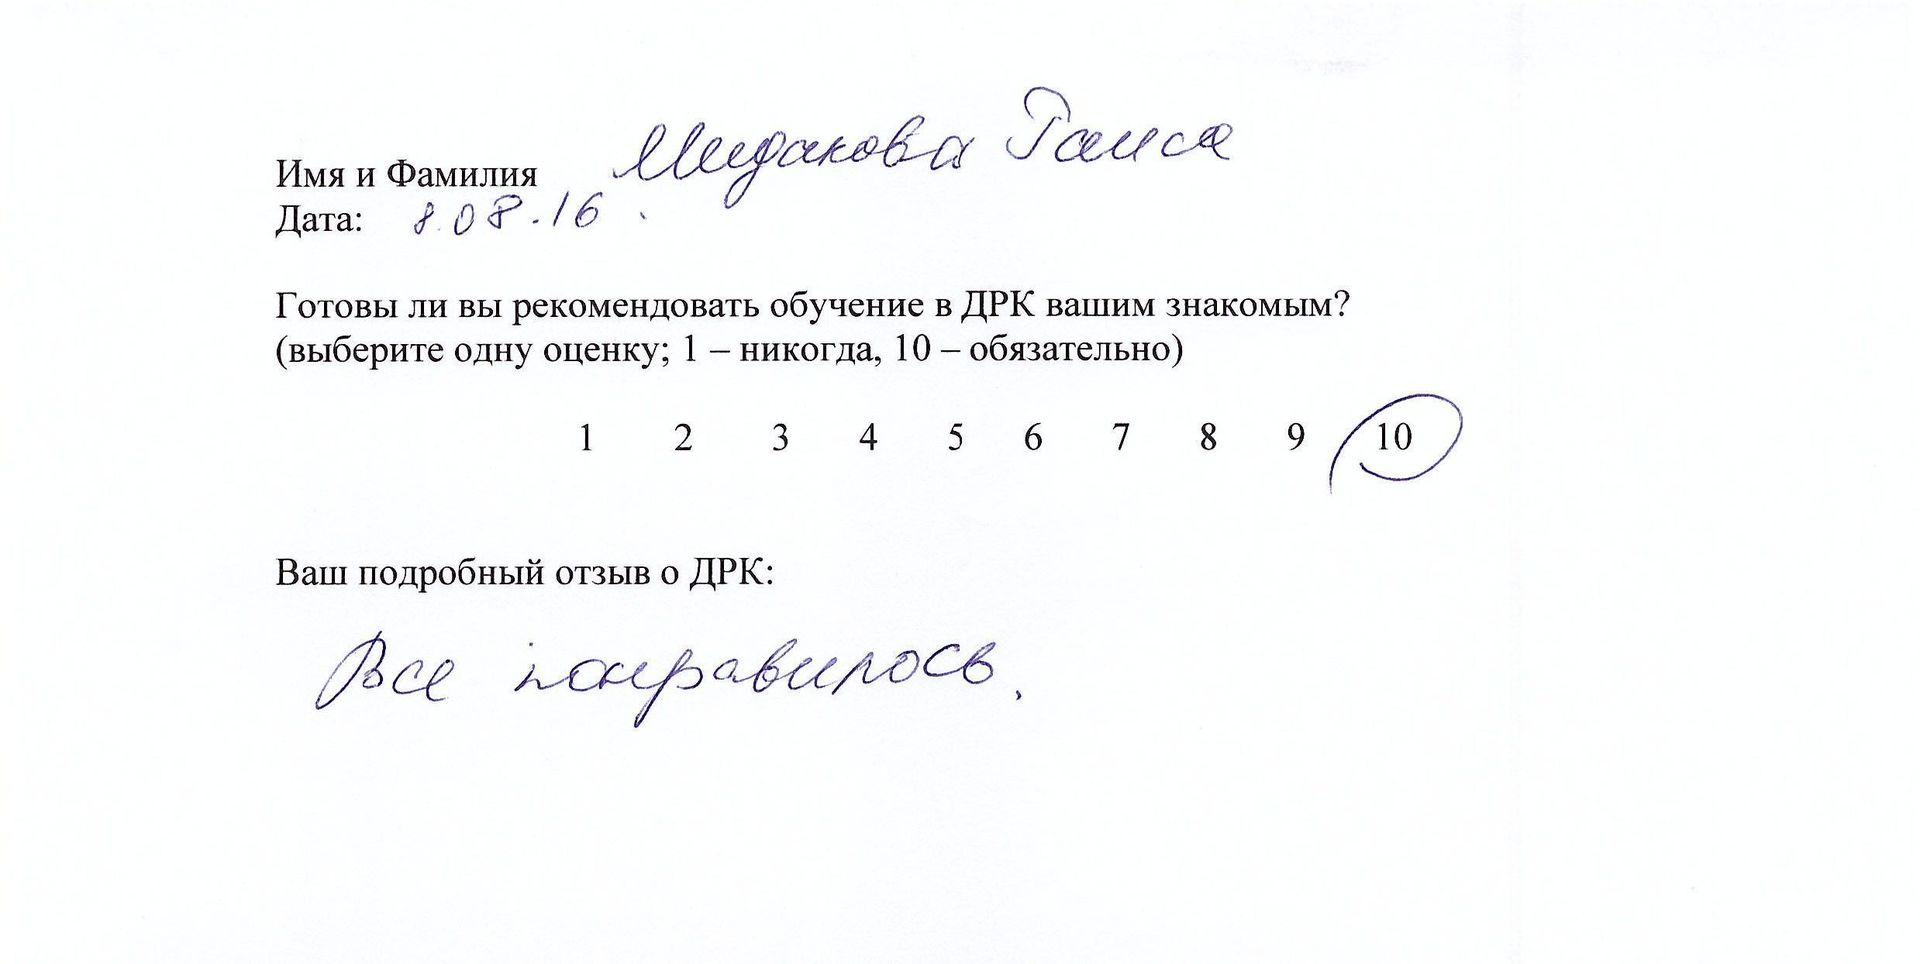 Имя и Фамилия Мидакова Раиса
Дата: 8.08.16.
Готовы ли вы рекомендовать обучение в ДРК вашим знакомым?
(выберите одну оценку; 1 – никогда, 10 – обязательно)
1 2 3 4 5 6 7 8 9 10
Ваш подробный отзыв о ДРК:
Все понравилось.